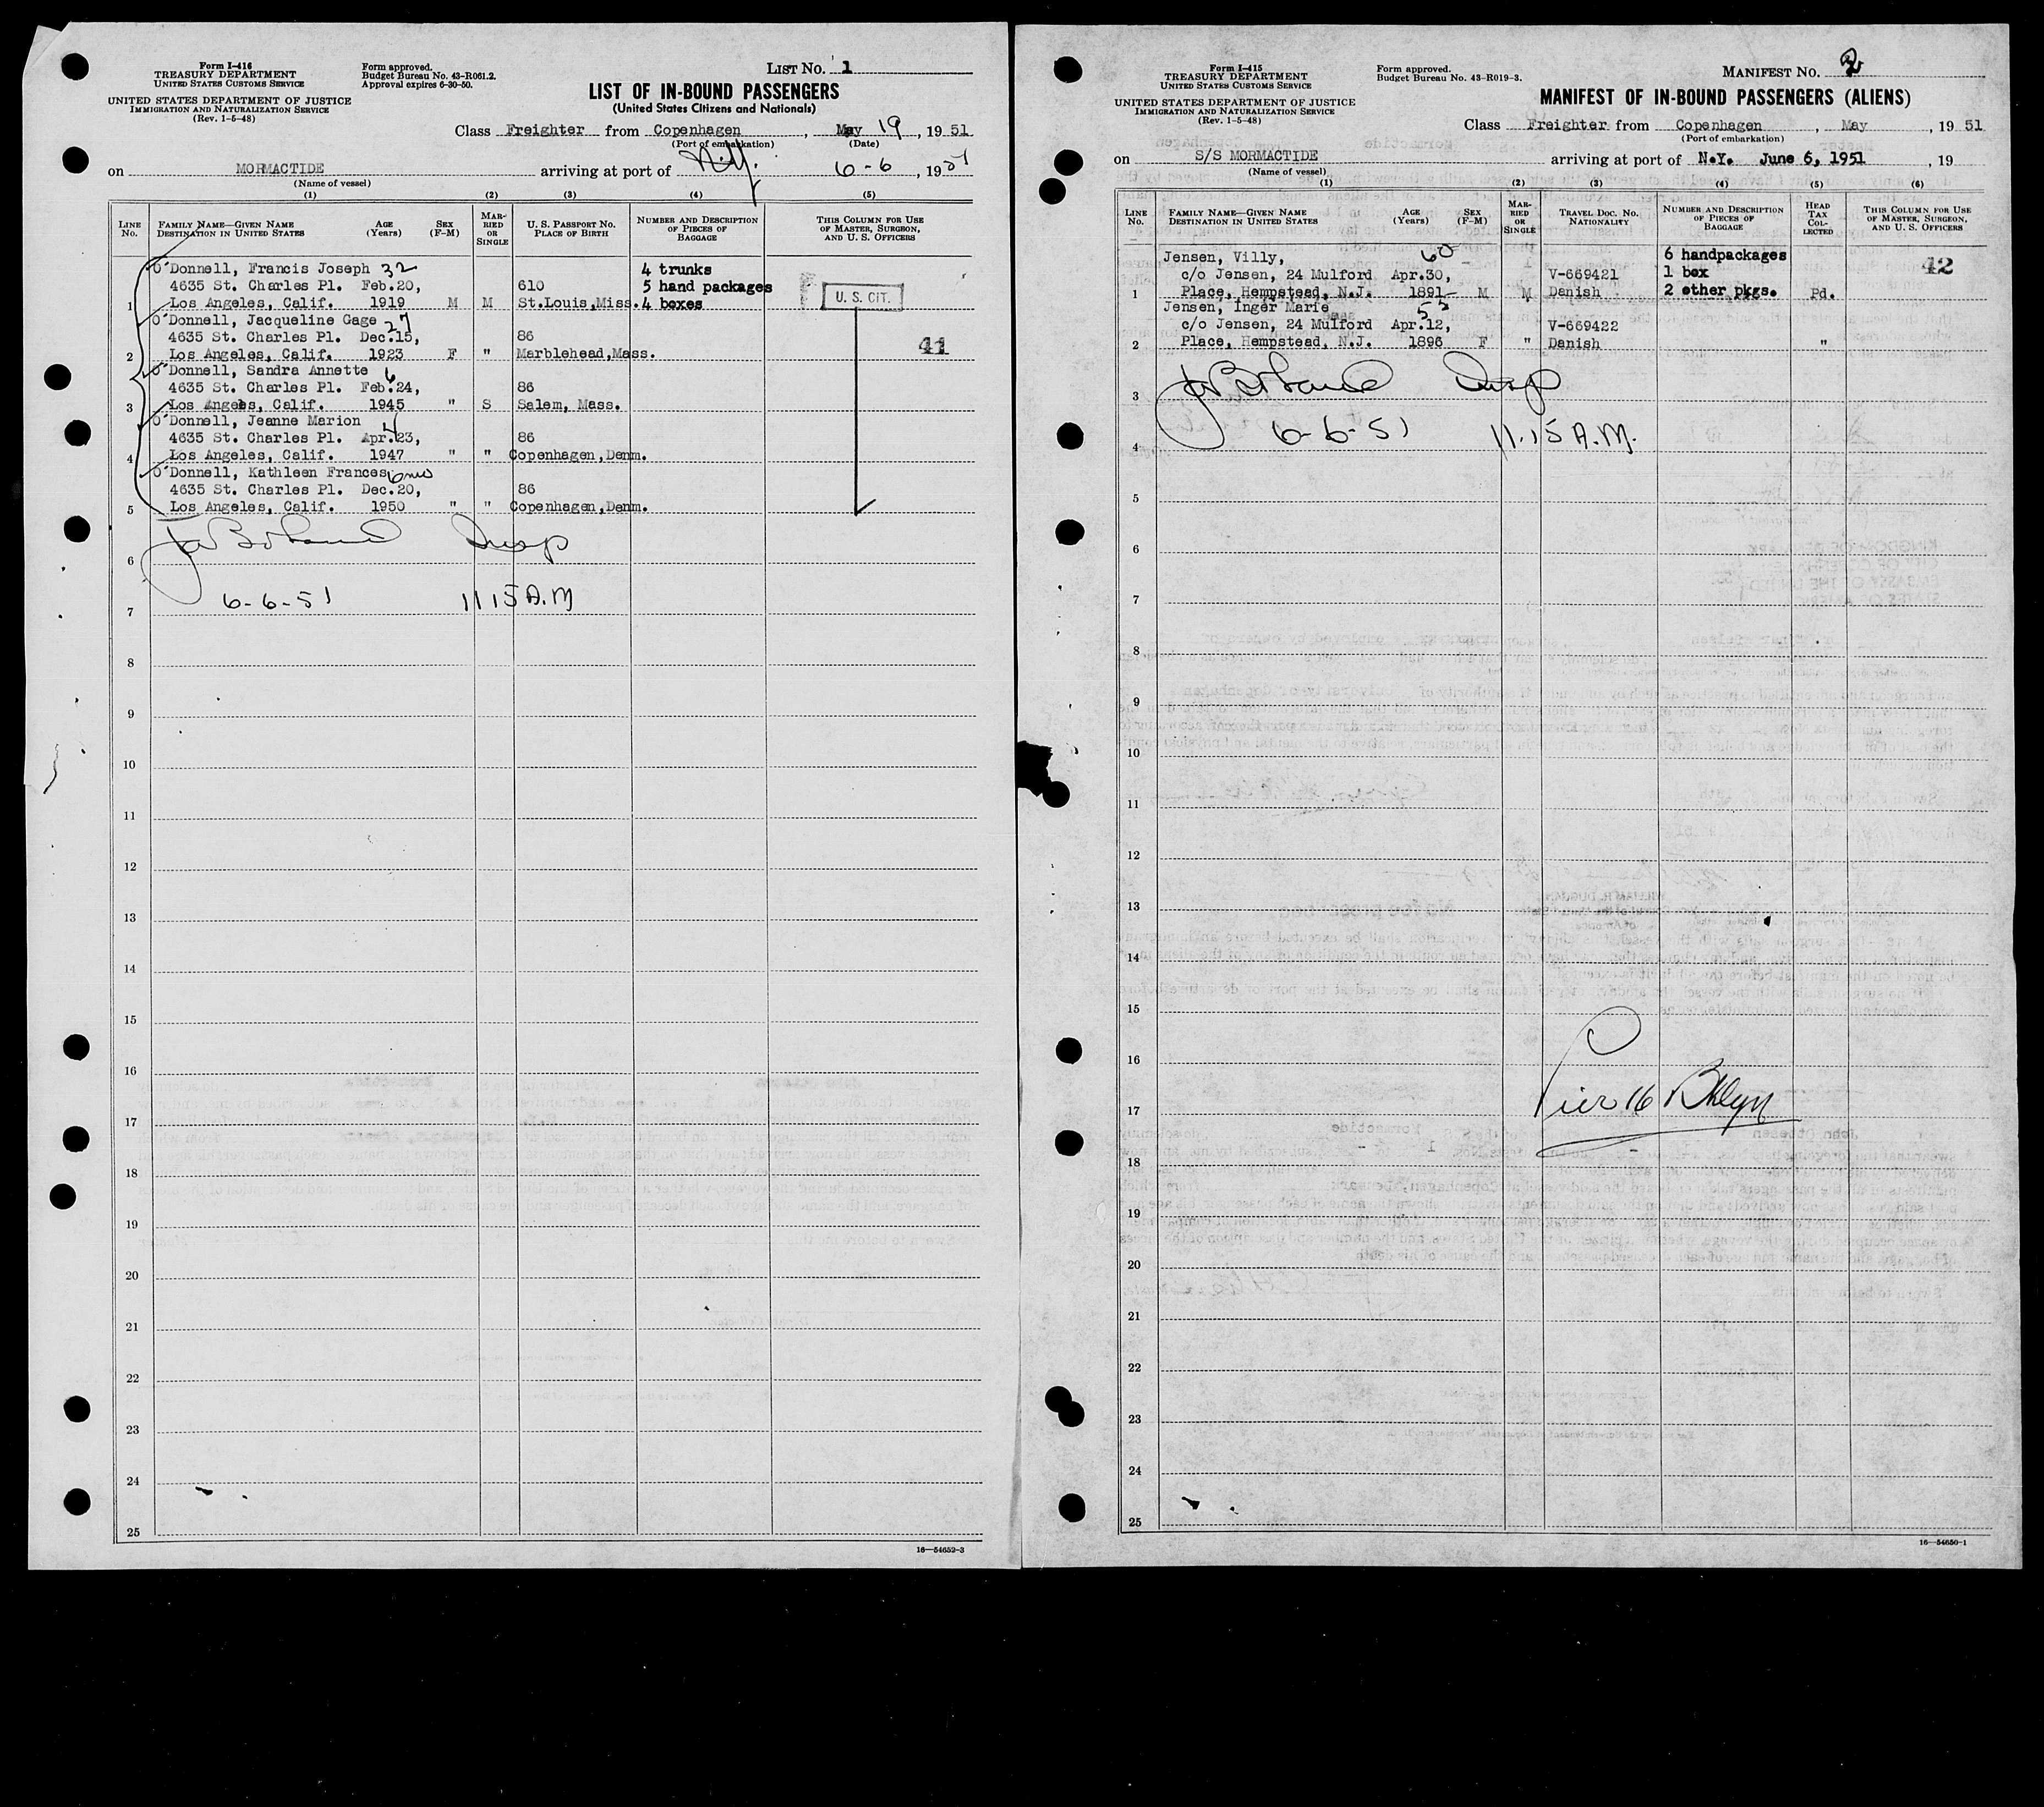 Form I-416
TREASURY DEPARTMENT
UNITED STATES CUSTOMS SERVICE
UNITED STATES DEPARTMENT OF JUSTICE
IMMIGRATION AND NATURALIZATION SERVICE
(Rev. 1-5-48)
Form approved.
Budget Bureau No. 43-R061.2.
Approval expires 6-30-50.
LIST NO. 1
LIST OF IN-BOUND PASSENGERS
(United States Citizens and Nationals)
Class Freighter from Copenhagen, May 19, 1951
(Port of embarkation) (Date)
on MORMACTIDE arriving at port of N.Y. 6-6, 1951
(Name of vessel)
(1) (2) (3) (4) (5)
LINE No. FAMILY NAME—GIVEN NAME DESTINATION IN UNITED STATES AGE (Years) SEX (F-M) MARRIED OR SINGLE U. S. PASSPORT NO. PLACE OF BIRTH NUMBER AND DESCRIPTION OF PIECES OF BAGGAGE THIS COLUMN FOR USE OF MASTER, SURGEON, AND U. S. OFFICERS
O'Donnell, Francis Joseph 32 4 trunks
4635 St. Charles Pl. Feb.20, 610 5 hand packages
1 Los Angeles, Calif. 1919 M M St.Louis,Miss. 4 boxes U. S. CIT.
O'Donnell, Jacqueline Gage 27
4635 St. Charles Pl. Dec.15, 86 41
2 Los Angeles, Calif. 1923 F " Marblehead,Mass.
O'Donnell, Sandra Annette 6
4635 St. Charles Pl. Feb.24, 86
3 Los Angeles, Calif. 1945 " S Salem, Mass.
O'Donnell, Jeanne Marion 4
4635 St. Charles Pl. Apr.23, 86
4 Los Angeles, Calif. 1947 " " Copenhagen,Denm.
O'Donnell, Kathleen Frances 6mo
4635 St. Charles Pl. Dec.20, 86
5 Los Angeles, Calif. 1950 " " Copenhagen,Denm.
Insp
6
6-6-51 11 15 A.M
7
8
9
10
11
12
13
14
15
16
17
18
19
20
21
22
23
24
25
16—54652-3
Form I-415
TREASURY DEPARTMENT
UNITED STATES CUSTOMS SERVICE
UNITED STATES DEPARTMENT OF JUSTICE
IMMIGRATION AND NATURALIZATION SERVICE
(Rev. 1-5-48)
Form approved.
Budget Bureau No. 43-R019-3.
MANIFEST NO. 2
MANIFEST OF IN-BOUND PASSENGERS (ALIENS)
Class Freighter from Copenhagen, May, 1951
(Port of embarkation)
on S/S MORMACTIDE arriving at port of N.Y. June 6, 1951, 19
(Name of vessel)
(1) (2) (3) (4) (5) (6)
LINE No. FAMILY NAME—GIVEN NAME DESTINATION IN UNITED STATES AGE (Years) SEX (F-M) MARRIED OR SINGLE TRAVEL DOC. NO. NATIONALITY NUMBER AND DESCRIPTION OF PIECES OF BAGGAGE HEAD TAX COLLECTED THIS COLUMN FOR USE OF MASTER, SURGEON, AND U. S. OFFICERS
Jensen, Villy, 60 6 handpackages
c/o Jensen, 24 Mulford Apr.30, V-669421 1 box 42
1 Place, Hempstead, N.J. 1891 M M Danish 2 other pkgs. Pd.
Jensen, Inger Marie 55
c/o Jensen, 24 Mulford Apr.12, V-669422
2 Place, Hempstead, N.J. 1896 F " Danish "
Insp
3
6-6-51 11.15 A.M.
4
5
6
7
8
9
10
11
12
13
14
15
16
Pier 16 Bklyn
17
18
19
20
21
22
23
24
25
16—54650-1